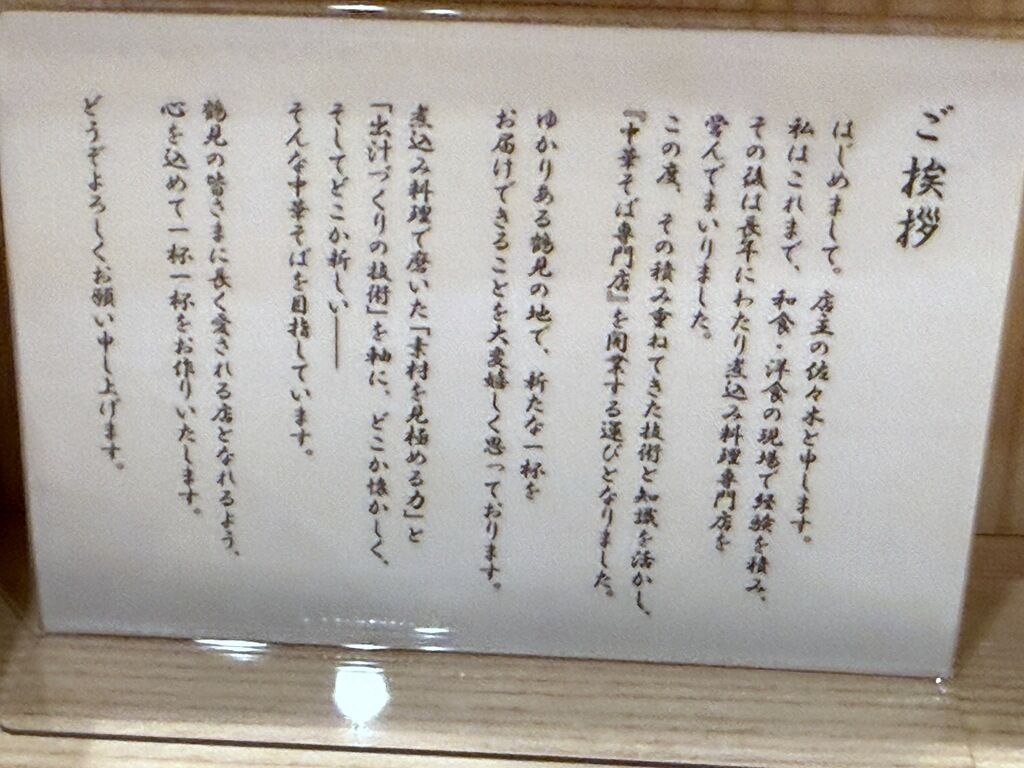 ご挨拶
はじめまして。店主の佐々木と申します。
私はこれまで、和食・洋食の現場で経験を積み、
その後は長年にわたり煮込み料理専門店を
営んでまいりました。
この度、その積み重ねてきた技術と知識を活かし、
『中華そば専門店』を開業する運びとなりました。
ゆかりある鶴見の地で、新たな一杯を
お届けできることを大変嬉しく思っております。
煮込み料理で磨いた「素材を見極める力」と
「出汁づくりの技術」を軸に、どこか懐かしく、
そしてどこか新しい――
そんな中華そばを目指しています。
鶴見の皆さまに長く愛される店となれるよう、
心を込めて一杯一杯をお作りいたします。
どうぞよろしくお願い申し上げます。